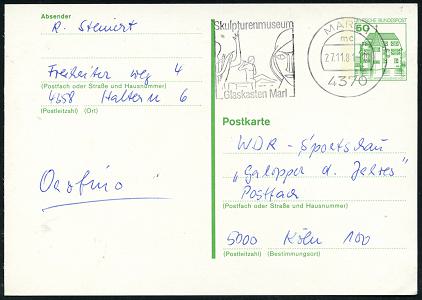 Absender
R. Steinert
Freiheiter weg 4
(Postfach oder Straße und Hausnummer)
4358 Haltern 6
(Postleitzahl) (Ort)
Skulpturenmuseum
Glaskasten Marl
MARL
mc
27.11.8
4370
DEUTSCHE BUNDESPOST
60
Postkarte
WDR - Sportschau
"Galopper d. Jahres"
Postfach
(Postfach oder Straße und Hausnummer)
5000 Köln 100
(Postleitzahl) (Bestimmungsort)